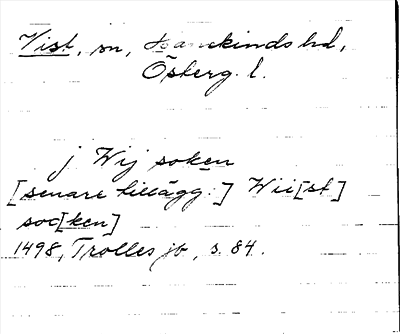 Vist, sn, Hanekinds hd,
Österg. l.
j Wij soken
[senare tillägg:] Wii[st]
soc[ken]
1498, Trolles jb, s. 84.